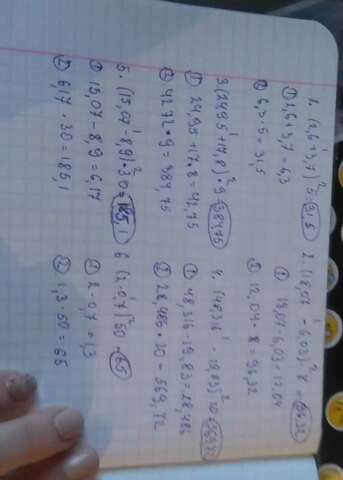 1. (2,6+3,7)·5=31,5
① 2,6+3,7=6,3
② 6,3·5=31,5
2. (18,07-6,03)·8=96,32
① 18,07-6,03=12,04
② 12,04·8=96,32
3. (24,95+17,8)·9=384,75
① 24,95+17,8=42,75
② 42,75·9=384,75
4. (48,316-19,83)·20=569,72
① 48,316-19,83=28,486
② 28,486·20=569,72
5. (15,07-8,9)·30=185,1
① 15,07-8,9=6,17
② 6,17·30=185,1
6. (2-0,7)·50=65
① 2-0,7=1,3
② 1,3·50=65